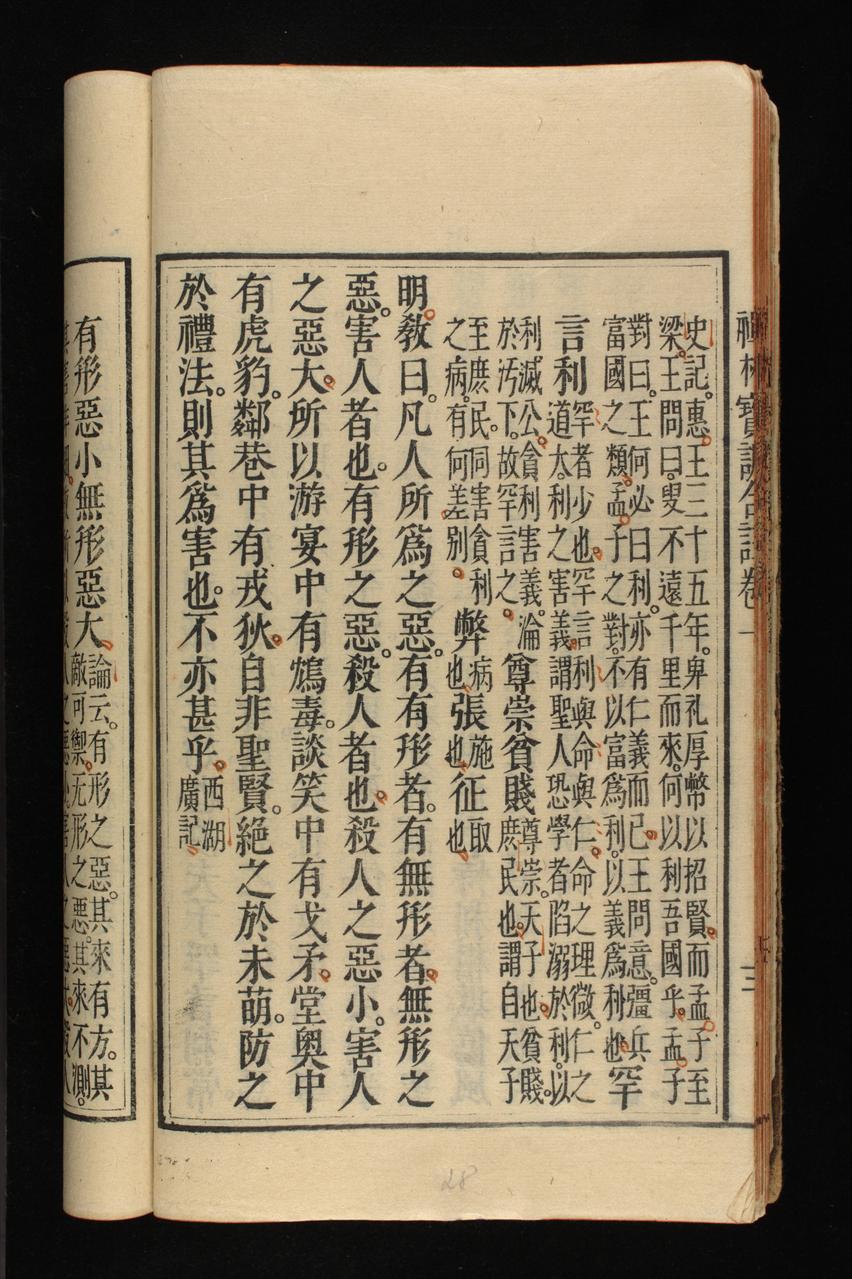 禪林寶訓合註卷一 三
史記。惠王三十五年。卑礼厚幣以招賢。而孟子至
梁。王問曰。叟不遠千里而來。何以利吾國乎。孟子
對曰。王何必曰利。亦有仁義而已。王問意。彊兵
富國之類。孟子之對。不以富爲利。以義爲利也。罕
言利罕者少也。罕言利與命與仁。命之理微。仁之
道大。利之害義。謂聖人恐學者陷溺於利。以
利滅公。貪利害義。淪
於汚下。故罕言之。
尊崇貧賤尊崇。天子也。貧賤。
庶民也。謂自天子
至庶民。同害貪利
之病。有何差別。
弊病也張施也征取也
明敎曰。凡人所爲之惡。有有形者。有無形者。無形之
惡。害人者也。有形之惡。殺人者也。殺人之惡小。害人
之惡大。所以游宴中有鴆毒。談笑中有戈矛。堂奧中
有虎豹。鄰巷中有戎狄。自非聖賢。絕之於未萌。防之
於禮法。則其爲害也。不亦甚乎。西湖廣記
有形惡小無形惡大。論云。有形之惡。其來有方。其
敵可禦。无形之惡。其來不測。